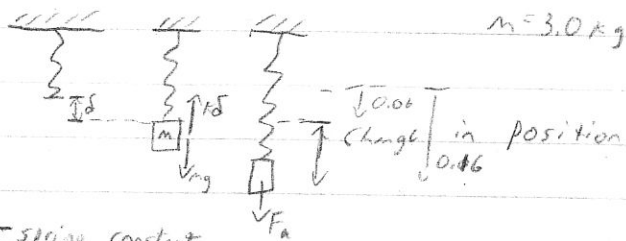 m = 3.0 kg
δ
kδ
m
mg
0.06
Change in position
0.16
Fa
- spring constant